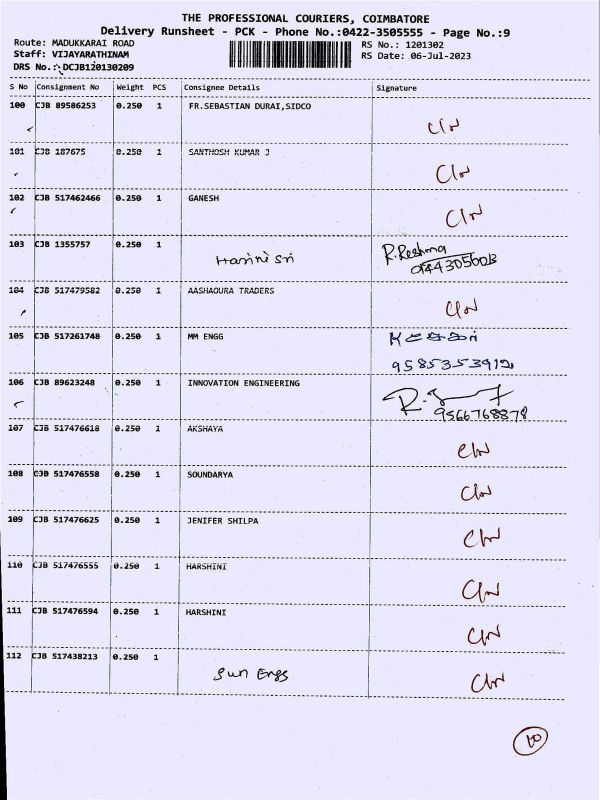 THE PROFESSIONAL COURIERS, COIMBATORE
Delivery Runsheet - PCK - Phone No.:0422-3505555 - Page No.:9
Route: MADUKKARAI ROAD RS No.: 1201302
Staff: VIJAYARATHINAM RS Date: 06-Jul-2023
DRS No.: DCJB120130209
S No Consignment No Weight PCS Consignee Details Signature
100 CJB 89586253 0.250 1 FR.SEBASTIAN DURAI,SIDCO
101 CJB 187675 0.250 1 SANTHOSH KUMAR J
102 CJB 517462466 0.250 1 GANESH
103 CJB 1355757 0.250 1 Harini Sri R.Reshma
9443056013
104 CJB 517479582 0.250 1 AASHAOURA TRADERS
105 CJB 517261748 0.250 1 MM ENGG
9585353912
106 CJB 89623248 0.250 1 INNOVATION ENGINEERING
9566768878
107 CJB 517476618 0.250 1 AKSHAYA
108 CJB 517476558 0.250 1 SOUNDARYA
109 CJB 517476625 0.250 1 JENIFER SHILPA
110 CJB 517476555 0.250 1 HARSHINI
111 CJB 517476594 0.250 1 HARSHINI
112 CJB 517438213 0.250 1 Sun Engg
10